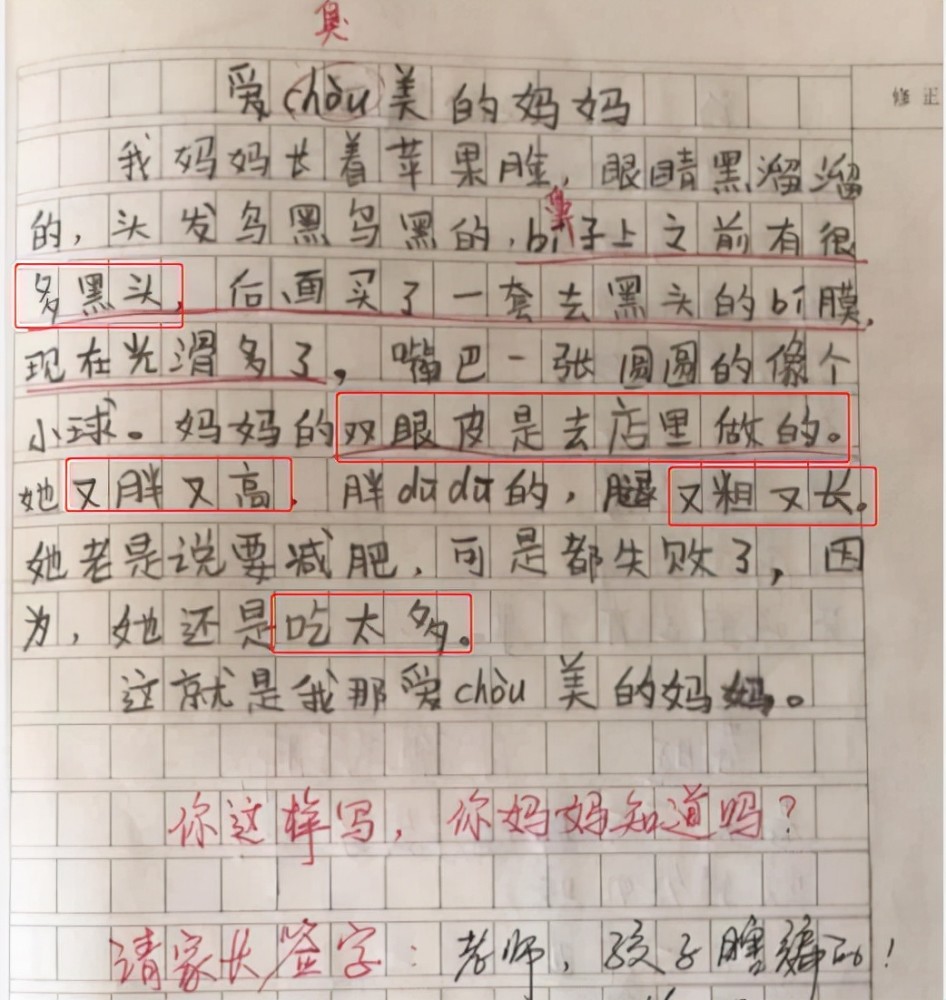 臭
爱chòu美的妈妈
修正
我妈妈长着苹果脸,眼睛黑溜溜
的,头发乌黑乌黑的,bí子上之前有很
鼻
多黑头,后面买了一套去黑头的bí膜,
现在光滑多了,嘴巴一张圆圆的像个
小球。妈妈的双眼皮是去店里做的。
她又胖又高,胖dūdū的,腿又粗又长。
她老是说要减肥,可是都失败了,因
为,她还是吃太多。
这就是我那爱chòu美的妈妈。
你这样写,你妈妈知道吗?
请家长签字:老师,孩子瞎编的!